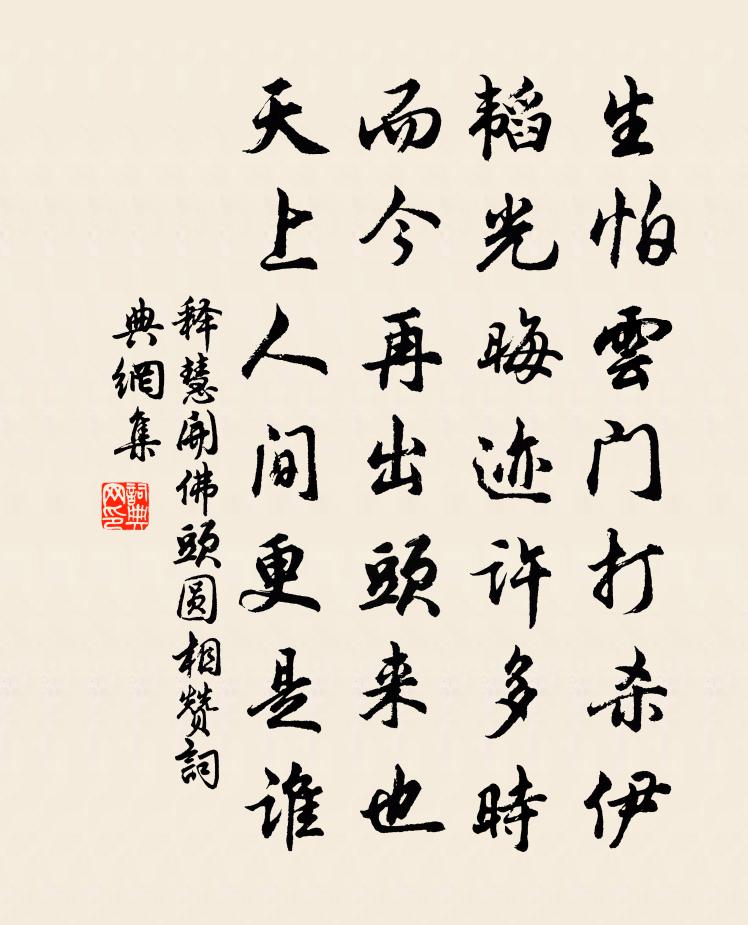 生怕雲门打杀伊
韬光晦迹许多時
而今再出頭来也
天上人间更是谁
释慧開佛頭圆相赞詞
典網集
詞典网印